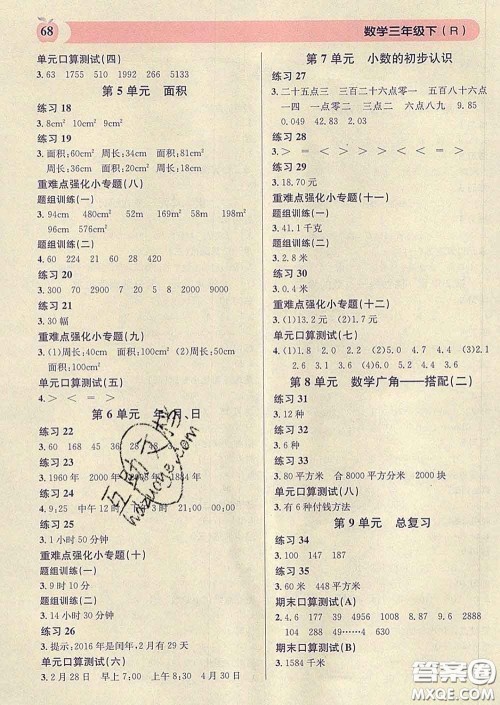 68
数学三年级下(R)
单元口算测试(四)
3. 63 1755 510 1992 266 5133
第 5 单元 面积
练习 18
3. 8cm² 10cm² 9cm²
练习 19
3. 面积:60cm² 周长:34cm 面积:81cm²
周长:36cm 面积:36cm²
重难点强化小专题(八)
题组训练(一)
3. 94cm 480cm² 52m 168m² 198m²
96cm 576cm²
题组训练(二)
4. 60 224 21 60 28 420
练习 20
3. 5 700 2900 7 20 15 2800 9000
练习 21
3. 30幅
重难点强化小专题(九)
3. (1)周长:40cm 面积:100cm²
(2)周长:50cm 面积:100cm²
单元口算测试(五)
4. > < = >
第 6 单元 年、月、日
练习 22
练习 23
3. 1960 年 2000 年
练习 24
4. 9:25
练习 25
3. 1 小时 30 分钟
重难点强化小专题(十)
题组训练(一)
3. 9 时 10 分
题组训练(二)
4. 14 小时 30 分钟
练习 26
3. 提示:2016 年是闰年,2 月有 29 天
单元口算测试(六)
3. 2 月 28 日 早上 7:00 上午 8:30 4 月 30 日
第 7 单元 小数的初步认识
练习 27
3. 二十五点三 三百二十六点零一 五百八十六点
一四 一点零二 三点二 六点八九 9.85
0.049 82.83 0.02
练习 28
3. > = > > < < > < = >
练习 29
3. 18.70 元
重难点强化小专题(十一)
题组训练(一)
3. 41.1 千克
题组训练(二)
3. 2.8 米
练习 30
3. 2.8 米
重难点强化小专题(十二)
3. (1)13.2 元 (2)1.7 元
单元口算测试(七)
第 8 单元 数学广角——搭配(二)
练习 31
3. 12 种
练习 33
3. 80 平方米 合 8000 平方分米 2000 块
单元口算测试(八)
3. 有 6 种付钱方法
第 9 单元 总复习
练习 34
3. 100 147 187
练习 35
3. 60米 448 平方米
期末口算测试(A)
2. 4.6 177 39 4956 1008 8.6 9.9 888
94 288 49……4 630
期末口算测试(B)
3. 1584 千米
互助文档
hzuche.com
答案圈
MXQE.COM